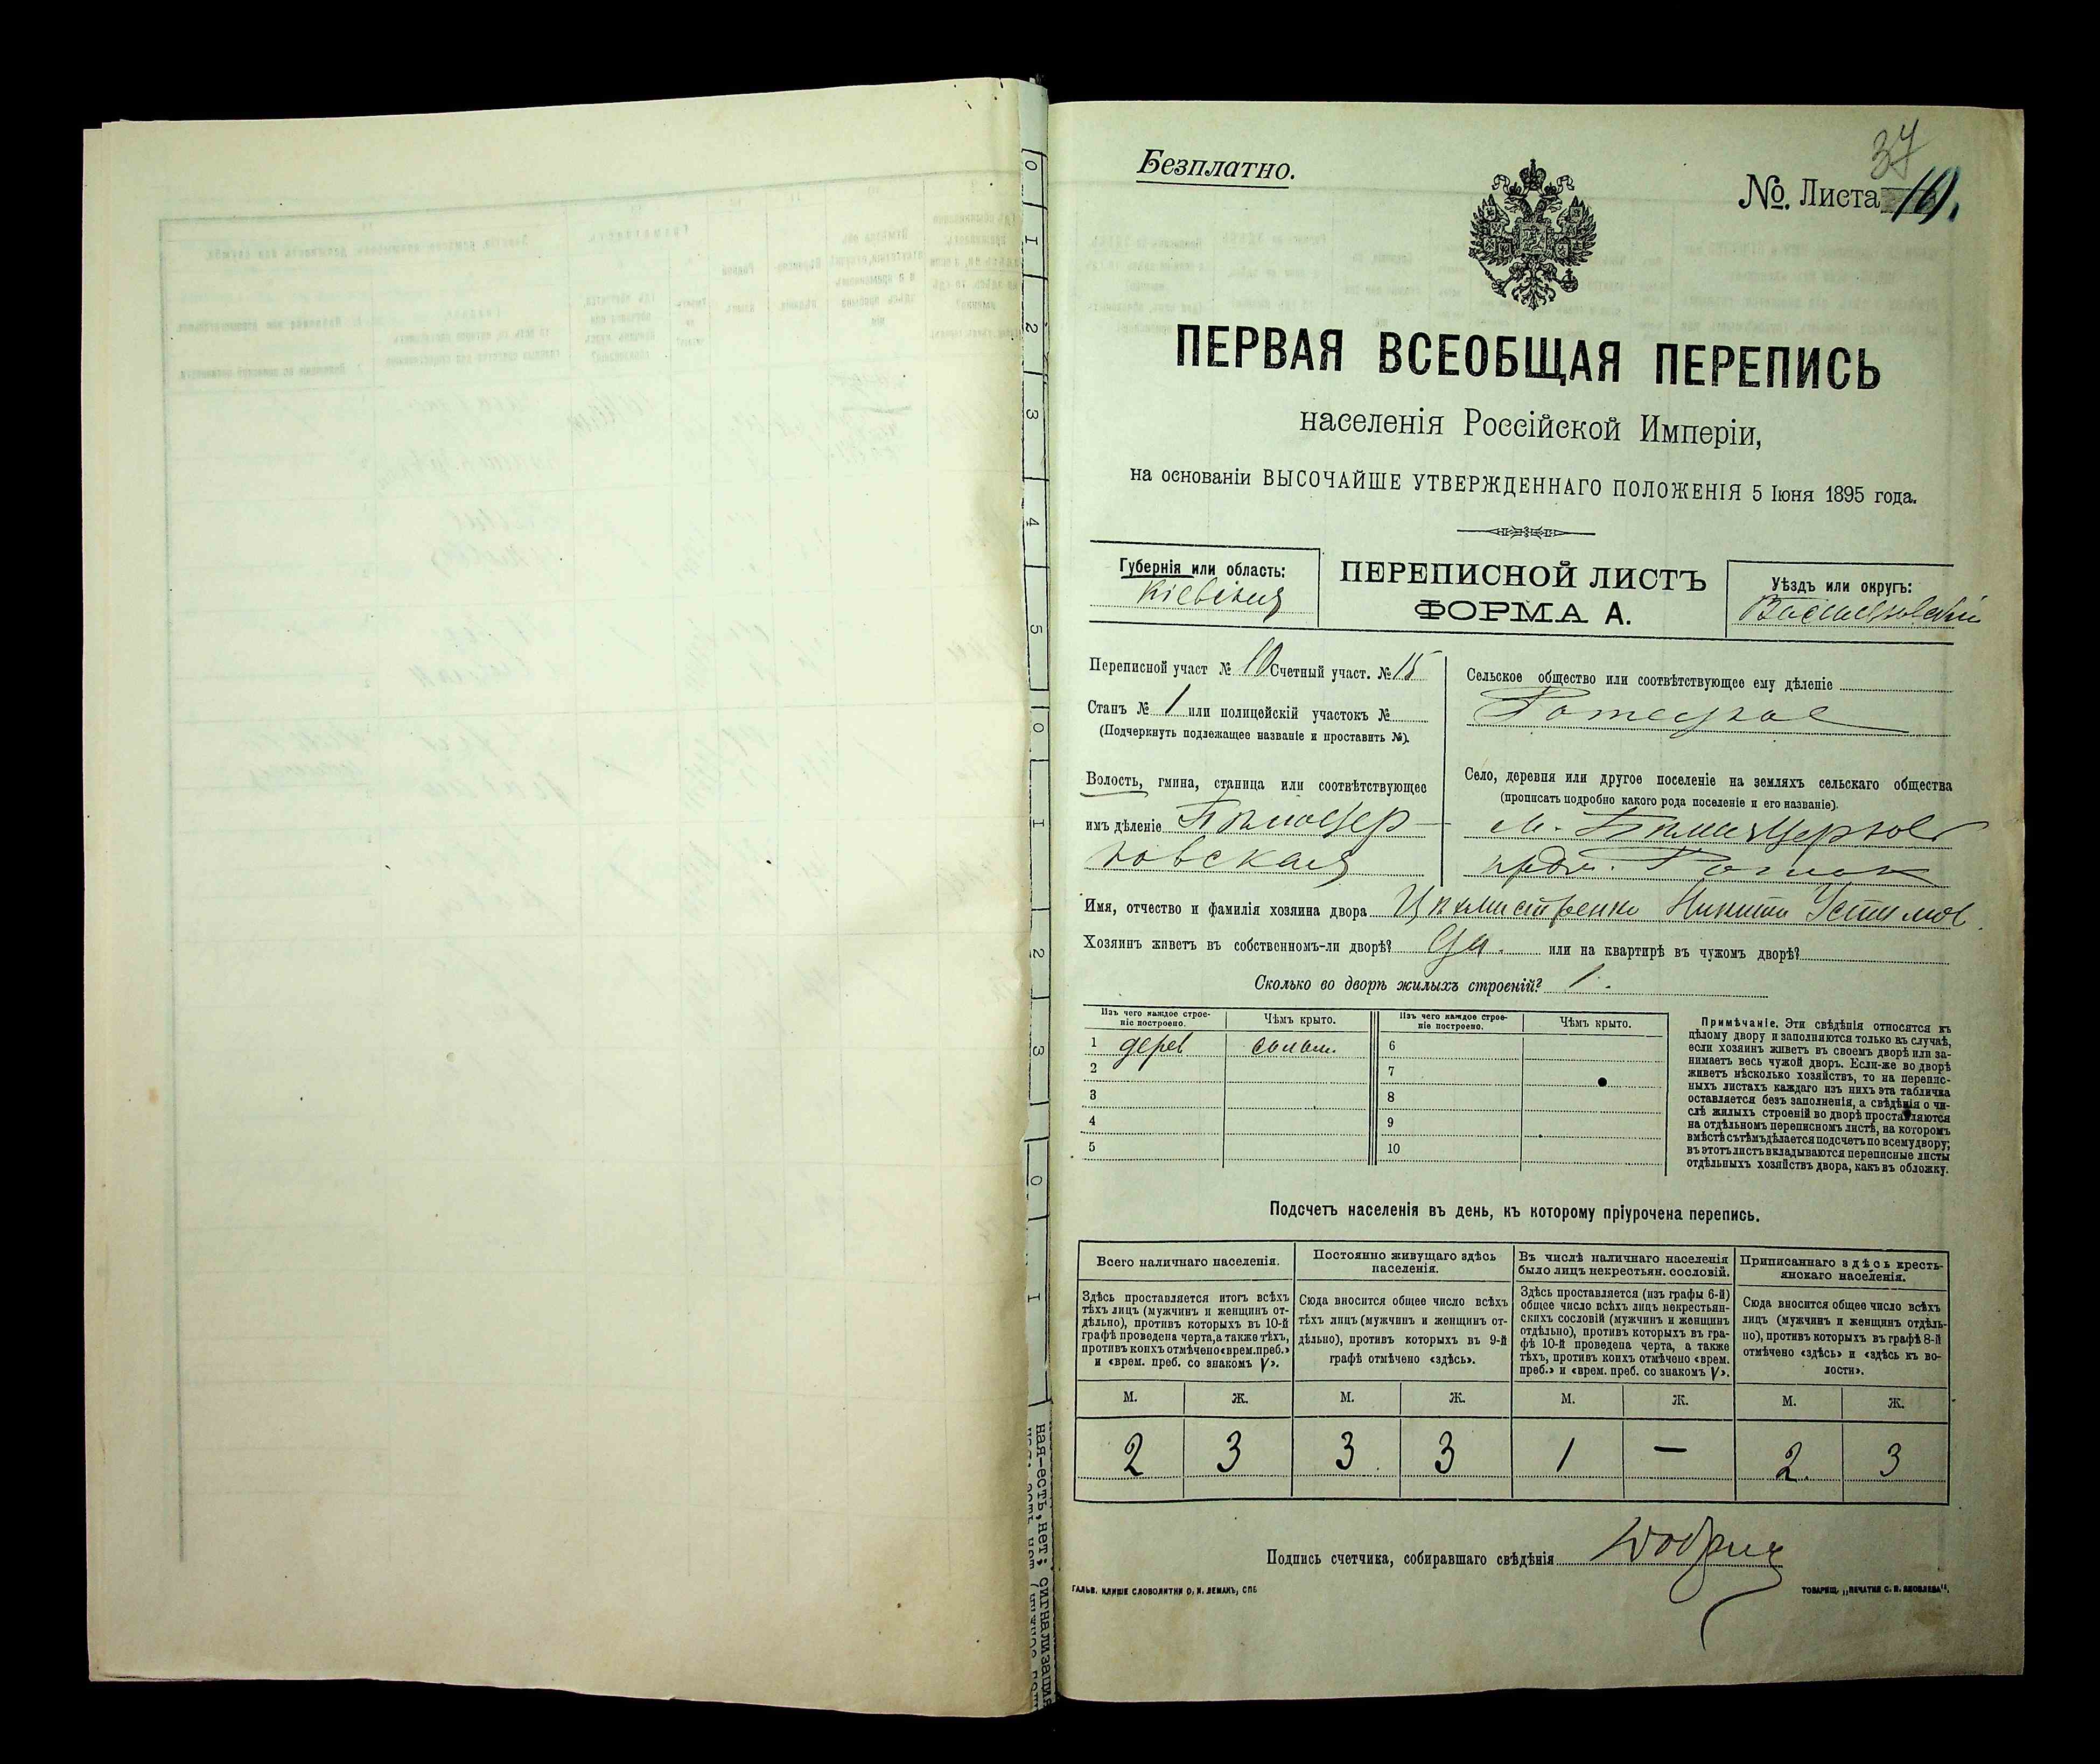 37
Безплатно.
№. Листа 19.
ПЕРВАЯ ВСЕОБЩАЯ ПЕРЕПИСЬ
населенія Россійской Имперіи,
на основаніи ВЫСОЧАЙШЕ УТВЕРЖДЕННАГО ПОЛОЖЕНІЯ 5 Іюня 1895 года.
Губернія или область:
Кіевская
ПЕРЕПИСНОЙ ЛИСТЪ
ФОРМА А.
Уѣздъ или округъ:
Васильковскій
Переписной участ № 10 Счетный участ. № 15
Станъ № 1 или полицейскій участокъ №
(Подчеркнуть подлежащее названіе и проставить №).
Волость, гмина, станица или соотвѣтствующее
имъ дѣленіе Бѣлоцер-
ковская
Сельское общество или соотвѣтствующее ему дѣленіе
Село, деревня или другое поселеніе на земляхъ сельскаго общества
(прописать подробно какого рода поселеніе и его названіе).
м. Бѣлая Церковь
предм. Роток
Имя, отчество и фамилія хозяина двора Никита Устимов
Хозяинъ живетъ въ собственномъ-ли дворѣ? да. или на квартирѣ въ чужомъ дворѣ?
Сколько во дворѣ жилыхъ строеній? 1.
Изъ чего каждое строе-
ніе построено.
Чѣмъ крыто.
Изъ чего каждое строе-
ніе построено.
Чѣмъ крыто.
1 дерев солом. 6
2 7
3 8
4 9
5 10
Примѣчаніе. Эти свѣдѣнія относятся къ
цѣлому двору и заполняются только въ случаѣ,
если хозяинъ живетъ въ своемъ дворѣ или за-
нимаетъ весь чужой дворъ. Если-же во дворѣ
живетъ нѣсколько хозяйствъ, то на перепис-
ныхъ листахъ каждаго изъ нихъ эта табличка
оставляется безъ заполненія, а свѣдѣнія о чи-
слѣ жилыхъ строеній во дворѣ проставляются
на отдѣльномъ переписномъ листѣ, на которомъ
вмѣстѣ съ тѣмъ дѣлается подсчетъ по всему двору;
въ этотъ листъ вкладываются переписные листы
отдѣльныхъ хозяйствъ двора, какъ въ обложку.
Подсчетъ населенія въ день, къ которому пріурочена перепись.
Всего наличнаго населенія.
Здѣсь проставляется итогъ всѣхъ
тѣхъ лицъ (мужчинъ и женщинъ от-
дѣльно), противъ которыхъ въ 10-й
графѣ проведена черта, а также тѣхъ,
противъ коихъ отмѣчено «врем. преб.»
и «врем. преб. со знакомъ V».
Постоянно живущаго здѣсь
населенія.
Сюда вносится общее число всѣхъ
тѣхъ лицъ (мужчинъ и женщинъ от-
дѣльно), противъ которыхъ въ 9-й
графѣ отмѣчено «здѣсь».
Въ числѣ наличнаго населенія
было лицъ некрестьян. сословій.
Здѣсь проставляется (изъ графы 6-й)
общее число всѣхъ лицъ некрестьян-
скихъ сословій (мужчинъ и женщинъ
отдѣльно), противъ которыхъ въ гра-
фѣ 10-й проведена черта, а также
тѣхъ, противъ коихъ отмѣчено «врем.
преб.» и «врем. преб. со знакомъ V».
Приписаннаго здѣсь кресть-
янскаго населенія.
Сюда вносится общее число всѣхъ
лицъ (мужчинъ и женщинъ отдѣль-
но), противъ которыхъ въ графѣ 8-й
отмѣчено «здѣсь» и «здѣсь къ во-
лости».
М. Ж. М. Ж. М. Ж. М. Ж.
2 3 3 3 1 — 2 3
Подпись счетчика, собиравшаго свѣдѣнія
ГАЛЬВ. КЛИШЕ СЛОВОЛИТНИ О. И. ЛЕМАНЪ, СПБ
ТОВАРИЩ. „ПЕЧАТНЯ С. П. ЯКОВЛЕВА“.